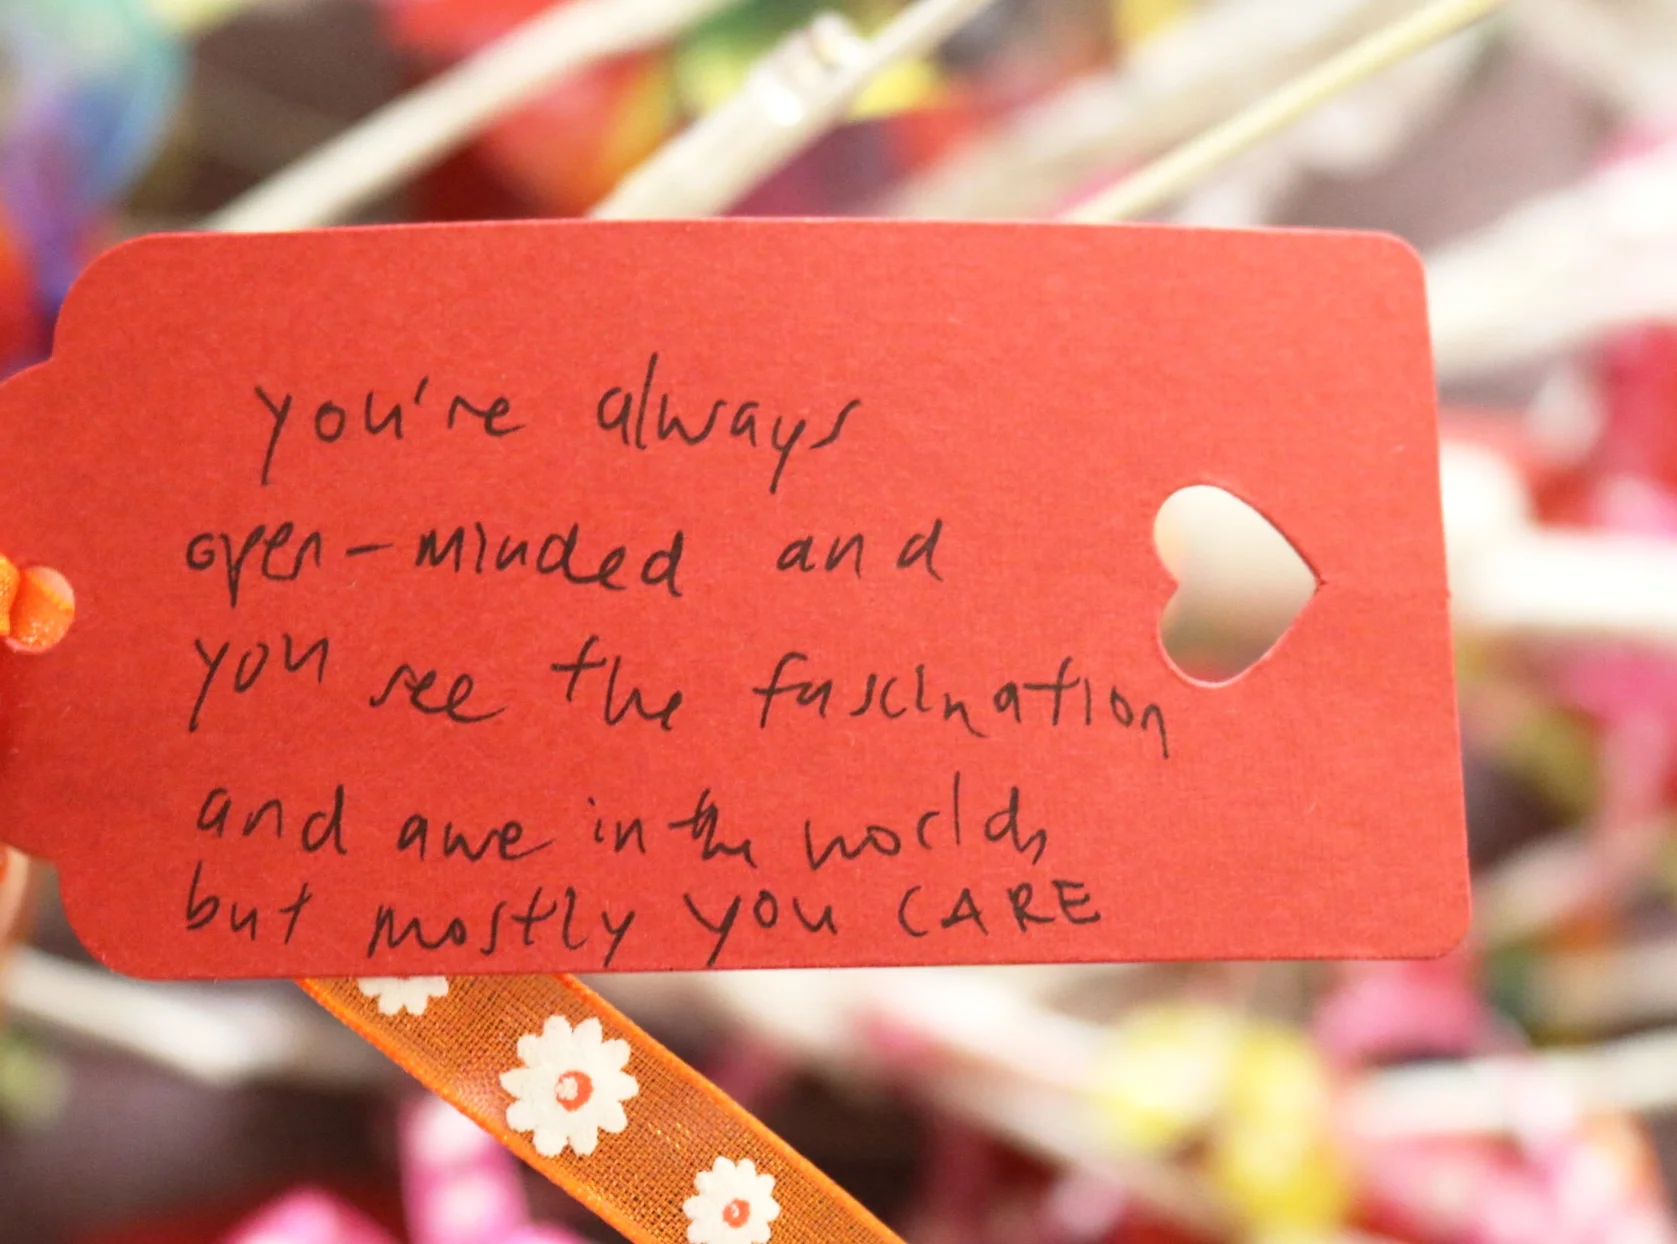 you're always
open-minded and
you see the fascination
and awe in the worlds
but mostly you CARE